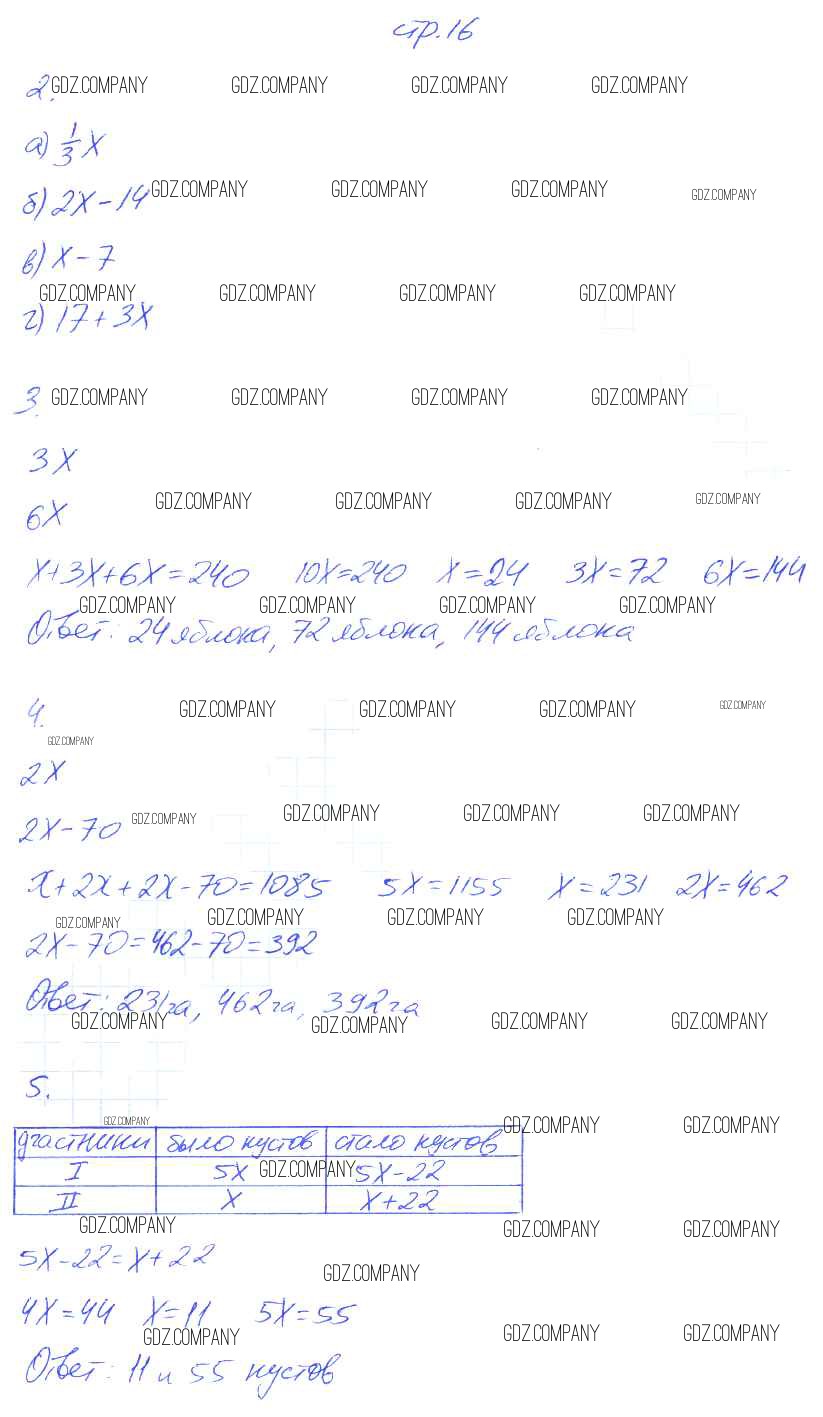 стр.16
2. GDZ.COMPANY GDZ.COMPANY GDZ.COMPANY GDZ.COMPANY
а) 1/3 X
GDZ.COMPANY GDZ.COMPANY GDZ.COMPANY GDZ.COMPANY
б) 2X - 14
в) X - 7
GDZ.COMPANY GDZ.COMPANY GDZ.COMPANY GDZ.COMPANY
г) 17 + 3X
3. GDZ.COMPANY GDZ.COMPANY GDZ.COMPANY GDZ.COMPANY
3X
GDZ.COMPANY GDZ.COMPANY GDZ.COMPANY GDZ.COMPANY
6X
X+3X+6X=240 10X=240 X=24 3X=72 6X=144
GDZ.COMPANY GDZ.COMPANY GDZ.COMPANY GDZ.COMPANY
Ответ: 24 яблока, 72 яблока, 144 яблока
4. GDZ.COMPANY GDZ.COMPANY GDZ.COMPANY GDZ.COMPANY
GDZ.COMPANY
2X
GDZ.COMPANY GDZ.COMPANY GDZ.COMPANY GDZ.COMPANY
2X - 70
X+2X+2X-70=1085 5X=1155 X=231 2X=462
GDZ.COMPANY GDZ.COMPANY GDZ.COMPANY GDZ.COMPANY
2X-70=462-70=392
Ответ: 231га, 462га, 392га
GDZ.COMPANY GDZ.COMPANY GDZ.COMPANY GDZ.COMPANY
5.
GDZ.COMPANY GDZ.COMPANY GDZ.COMPANY
участники было кустов стало кустов
I 5X GDZ.COMPANY 5X-22
II X X+22
GDZ.COMPANY GDZ.COMPANY GDZ.COMPANY
5X-22=X+22
GDZ.COMPANY
4X=44 X=11 5X=55
GDZ.COMPANY GDZ.COMPANY GDZ.COMPANY
Ответ: 11 и 55 кустов